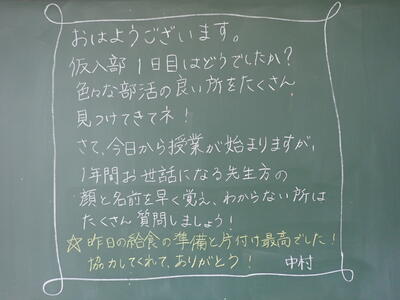 おはようございます。
仮入部1日目はどうでしたか？
色々な部活の良い所をたくさん
見つけてきてネ！
さて、今日から授業が始まりますが、
1年間お世話になる先生方の
顔と名前を早く覚え、わからない所は
たくさん質問しましょう！
☆昨日の給食の準備と片付け最高でした！
協力してくれて、ありがとう！ 中村